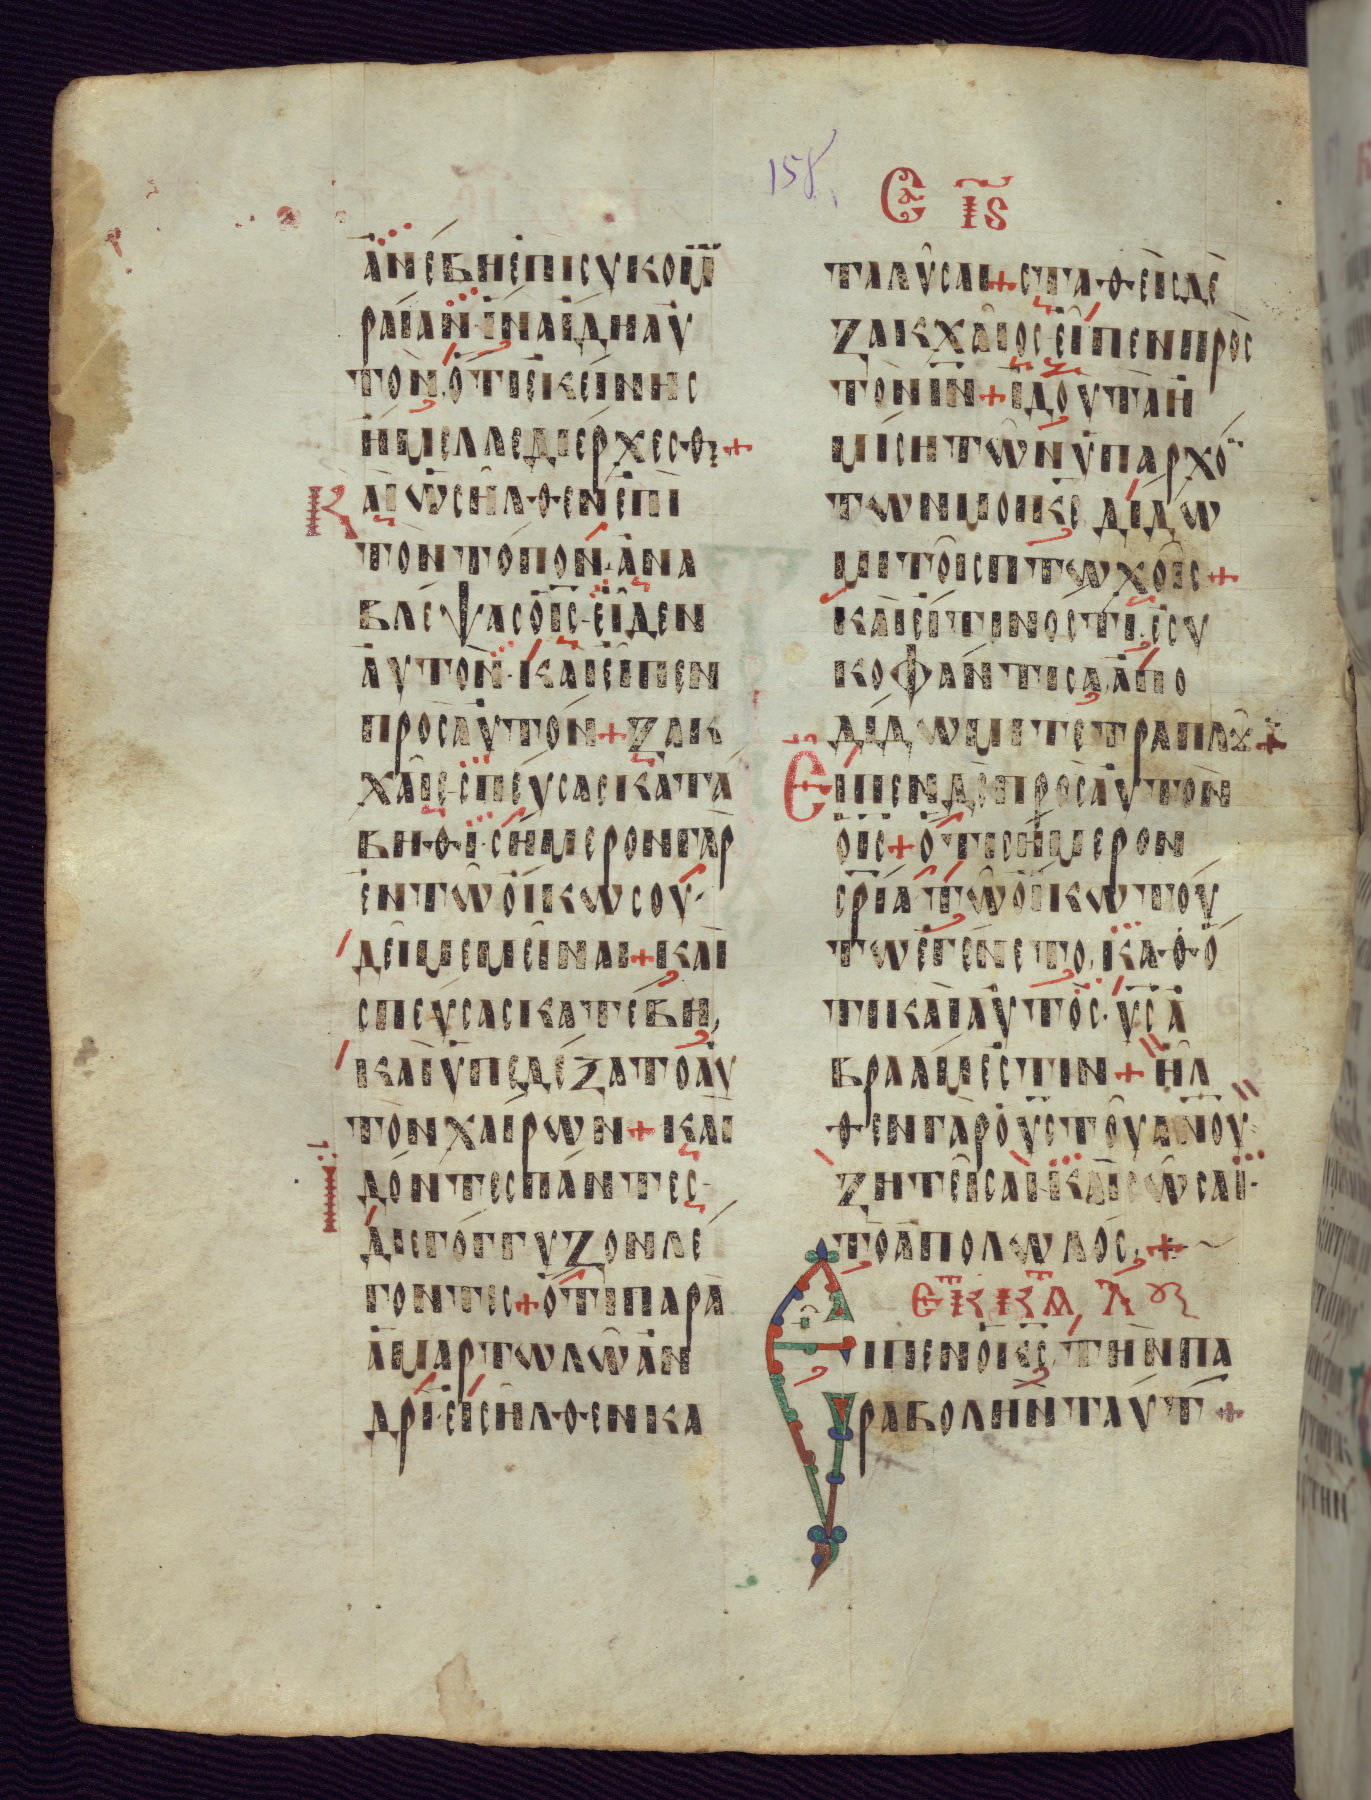 158
Ε ΙϚ
ἀνέβη ἐπὶ συκομω
ραίαν· ἵνα ἴδη αὐ
τόν, ὅτι ἐκείνης
ἤμελλε διέρχεσθαι +
Καὶ ὡς ἦλθεν ἐπὶ
τὸν τόπον· ἀνα
βλέψας ὁ ΙΣ· εἶδεν
αὐτόν· καὶ εἶπεν
πρὸς αὐτόν + Ζακ
χαῖε· σπεύσας κατά
βηθι· σήμερον γὰρ
ἐν τῷ οἴκῳ σου·
δεῖ με μεῖναι + καὶ
σπεύσας κατέβη,
καὶ ὑπεδέξατο αὐ
τὸν χαίρων + καὶ
Ἰδόντες πάντες·
διεγόγγυζον λέ
γοντες + ὅτι παρὰ
ἁμαρτωλῷ ἀν
δρὶ· εἰσῆλθεν κα
ταλῦσαι + σταθεὶς δὲ
Ζακχαῖος· εἶπεν πρὸς
τὸν ΙΝ + ἰδοὺ τὰ ἡ
μίση τῶν ὑπαρχό
των μου ΚΕ δίδω
μι τοῖς πτωχοῖς +
καὶ εἴ τινός τι ἐσυ
κοφάντισα, ἀπο
δίδωμι τετραπλοῦν +
Εἶπεν δὲ πρὸς αὐτὸν
ὁ ΙΣ + ὅτι σήμερον
ΣΡΙΑ τῷ οἴκῳ τού
τω ἐγένετο, καθό
τι καὶ αὐτὸς· ΥΣ Ἀ
βραάμ ἐστιν + ἦλ
θεν γὰρ ὁ ΥΣ τοῦ ΑΝΟΥ·
ζητεῖσαι· καὶ σῶσαι·
τὸ ἀπολωλός, + ~
Εἶπεν ὁ ΚΣ, τὴν πα
ραβολὴν ταύτ +